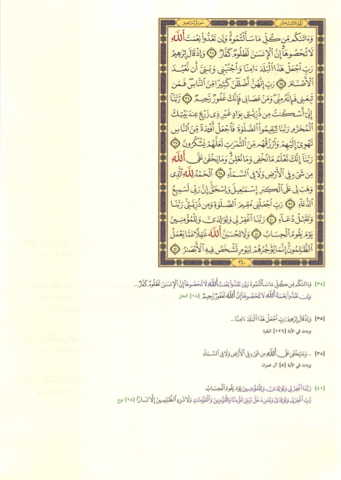 الجزء الثالث عشر سورة إبراهيم
وَءَاتَىٰكُم مِّن كُلِّ مَا سَأَلْتُمُوهُ وَإِن تَعُدُّوا نِعْمَتَ ٱللَّهِ
لَا تُحْصُوهَآ إِنَّ ٱلْإِنسَٰنَ لَظَلُومٌ كَفَّارٌ ٣٤ وَإِذْ قَالَ إِبْرَٰهِيمُ
رَبِّ ٱجْعَلْ هَٰذَا ٱلْبَلَدَ ءَامِنًا وَٱجْنُبْنِي وَبَنِيَّ أَن نَّعْبُدَ
ٱلْأَصْنَامَ ٣٥ رَبِّ إِنَّهُنَّ أَضْلَلْنَ كَثِيرًا مِّنَ ٱلنَّاسِ فَمَن
تَبِعَنِي فَإِنَّهُۥ مِنِّي وَمَنْ عَصَانِي فَإِنَّكَ غَفُورٌ رَّحِيمٌ ٣٦ رَّبَّنَآ
إِنِّيٓ أَسْكَنتُ مِن ذُرِّيَّتِي بِوَادٍ غَيْرِ ذِي زَرْعٍ عِندَ بَيْتِكَ
ٱلْمُحَرَّمِ رَبَّنَا لِيُقِيمُوا ٱلصَّلَوٰةَ فَٱجْعَلْ أَفْـِٔدَةً مِّنَ ٱلنَّاسِ
تَهْوِيٓ إِلَيْهِمْ وَٱرْزُقْهُم مِّنَ ٱلثَّمَرَٰتِ لَعَلَّهُمْ يَشْكُرُونَ ٣٧
رَبَّنَآ إِنَّكَ تَعْلَمُ مَا نُخْفِي وَمَا نُعْلِنُ وَمَا يَخْفَىٰ عَلَى ٱللَّهِ
مِن شَيْءٍ فِي ٱلْأَرْضِ وَلَا فِي ٱلسَّمَآءِ ٣٨ ٱلْحَمْدُ لِلَّهِ ٱلَّذِي
وَهَبَ لِي عَلَى ٱلْكِبَرِ إِسْمَٰعِيلَ وَإِسْحَٰقَ إِنَّ رَبِّي لَسَمِيعُ
ٱلدُّعَآءِ ٣٩ رَبِّ ٱجْعَلْنِي مُقِيمَ ٱلصَّلَوٰةِ وَمِن ذُرِّيَّتِي رَبَّنَا
وَتَقَبَّلْ دُعَآءِ ٤٠ رَبَّنَا ٱغْفِرْ لِي وَلِوَٰلِدَيَّ وَلِلْمُؤْمِنِينَ
يَوْمَ يَقُومُ ٱلْحِسَابُ ٤١ وَلَا تَحْسَبَنَّ ٱللَّهَ غَٰفِلًا عَمَّا يَعْمَلُ
ٱلظَّٰلِمُونَ إِنَّمَا يُؤَخِّرُهُمْ لِيَوْمٍ تَشْخَصُ فِيهِ ٱلْأَبْصَٰرُ ٤٢
٢٦٠
[٣٤] وَءَاتَىٰكُم مِّن كُلِّ مَا سَأَلْتُمُوهُ وَإِن تَعُدُّوا نِعْمَتَ ٱللَّهِ لَا تُحْصُوهَآ إِنَّ ٱلْإِنسَٰنَ لَظَلُومٌ كَفَّارٌ...
وَإِن تَعُدُّوا نِعْمَةَ ٱللَّهِ لَا تُحْصُوهَآ إِنَّ ٱللَّهَ لَغَفُورٌ رَّحِيمٌ [١٨] النحل
[٣٥] وَإِذْ قَالَ إِبْرَٰهِيمُ رَبِّ ٱجْعَلْ هَٰذَا ٱلْبَلَدَ ءَامِنًا...
وردت في الآية [١٢٦] البقرة
[٣٨] ...وَمَا يَخْفَىٰ عَلَى ٱللَّهِ مِن شَيْءٍ فِي ٱلْأَرْضِ وَلَا فِي ٱلسَّمَآءِ
وردت في الآية [٥] آل عمران
[٤١] رَبَّنَا ٱغْفِرْ لِي وَلِوَٰلِدَيَّ وَلِلْمُؤْمِنِينَ يَوْمَ يَقُومُ ٱلْحِسَابُ
رَّبِّ ٱغْفِرْ لِي وَلِوَٰلِدَيَّ وَلِمَن دَخَلَ بَيْتِيَ مُؤْمِنًا وَلِلْمُؤْمِنِينَ وَٱلْمُؤْمِنَٰتِ وَلَا تَزِدِ ٱلظَّٰلِمِينَ إِلَّا تَبَارًا [٢٨] نوح